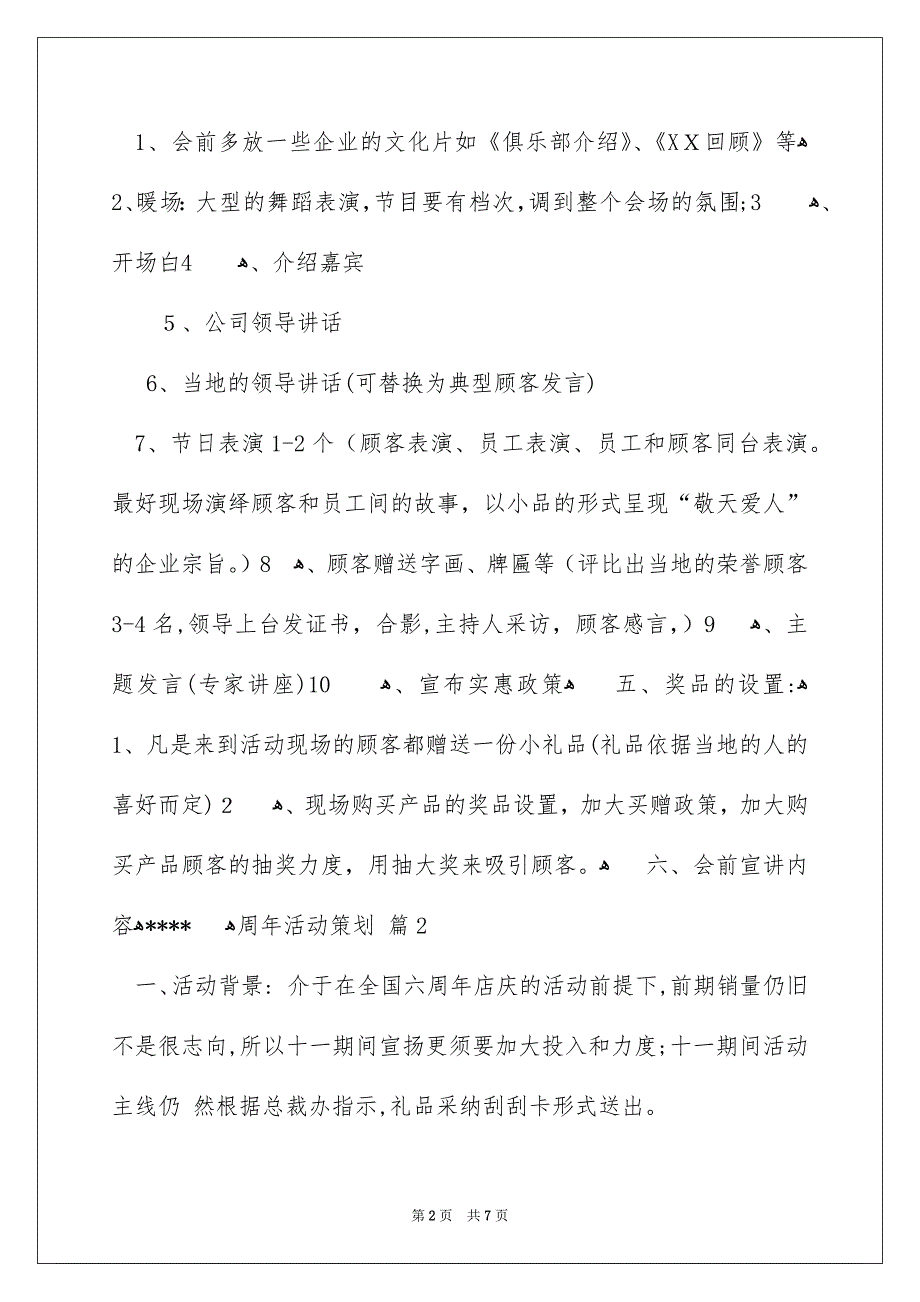 1、会前多放一些企业的文化片如《俱乐部介绍》、《XX回顾》等ﻫ
2、暖场：大型的舞蹈表演，节目要有档次，调到整个会场的氛围;3ﻫ、
开场白4ﻫ、介绍嘉宾
5、公司领导讲话
6、当地的领导讲话(可替换为典型顾客发言)
7、节日表演1-2个（顾客表演、员工表演、员工和顾客同台表演。
最好现场演绎顾客和员工间的故事，以小品的形式呈现“敬天爱人”
的企业宗旨。）8ﻫ、顾客赠送字画、牌匾等（评比出当地的荣誉顾客
3-4名,领导上台发证书，合影,主持人采访，顾客感言,）9ﻫ、主
题发言(专家讲座)10ﻫ、宣布实惠政策ﻫ 五、奖品的设置:ﻫ
1、凡是来到活动现场的顾客都赠送一份小礼品(礼品依据当地的人的
喜好而定) 2ﻫ、现场购买产品的奖品设置，加大买赠政策，加大购
买产品顾客的抽奖力度，用抽大奖来吸引顾客。ﻫ 六、会前宣讲内
容ﻫ**** ﻫ周年活动策划 篇2
一、活动背景: 介于在全国六周年店庆的活动前提下,前期销量仍旧
不是很志向,所以十一期间宣扬更须要加大投入和力度;十一期间活动
主线仍 然根据总裁办指示,礼品采纳刮刮卡形式送出。
第2页 共7页